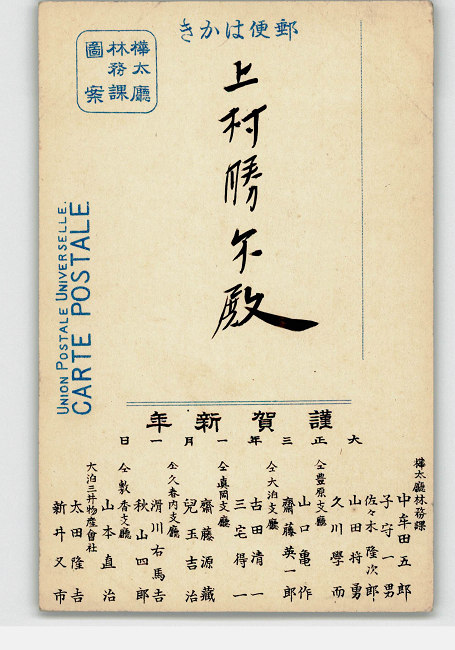 郵便はかき
樺太廳
林務課
圖案
UNION POSTALE UNIVERSELLE.
CARTE POSTALE
上村勝爾殿
謹賀新年
大正三年一月一日
樺太廳林務課
中牟田五郎
子守一男
佐々木隆次郎
山田狩勇
久川學而
仝豊原支廳
山口亀作
齋藤英一郎
仝大泊支廳
古田清一
三宅得一
仝真岡支廳
齋藤源藏
兒玉吉治
仝久春内支廳
滑川右馬吉
秋山四郎
仝敷香支廳
山本直治
大泊三井物産會社
太田隆吉
新井又市